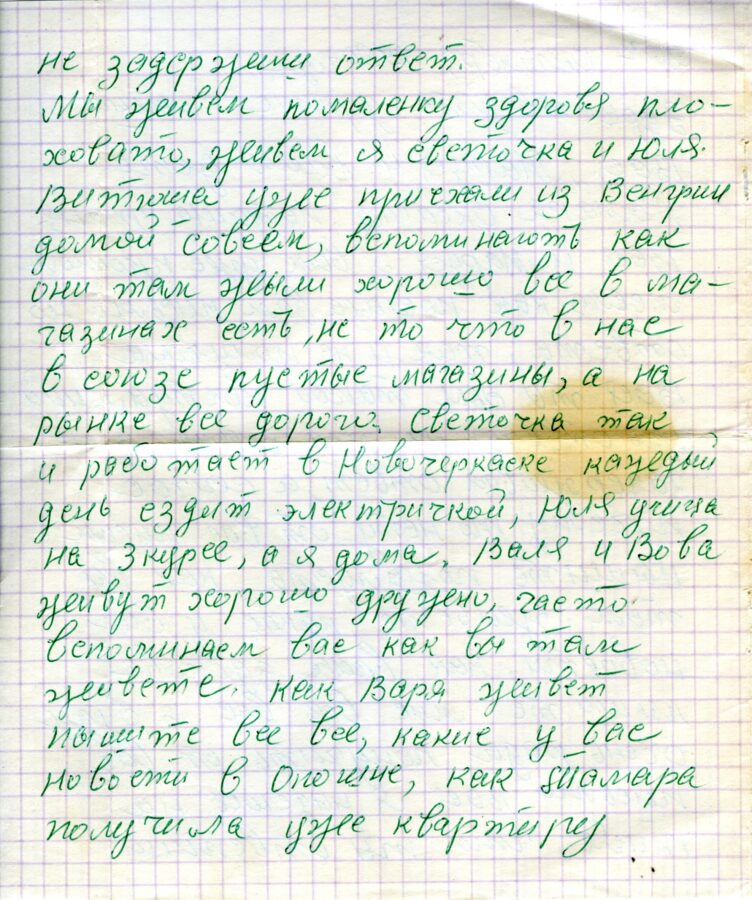 не задержили ответ.
Мы живем помаленку здоровя пло-
ховато, живем я светочка и Юля.
Витюша уже приехали из Венгрии
домой совсем, вспоминають как
они там жыли хорошо все в ма-
газинах есть, не то что в нас
в союзе пустые магазины, а на
рынке все дорого. Светочка так
и работает в Новочеркаске каждый
день ездит электричкой, Юля учица
на 3 курсе, а я дома. Валя и Вова
живут хорошо дружно, часто
вспоминаем вас как вы там
живете. как Варя живет
пышите все все, какие у вас
новости в Опошне, как Тамара
получила уже квартиру